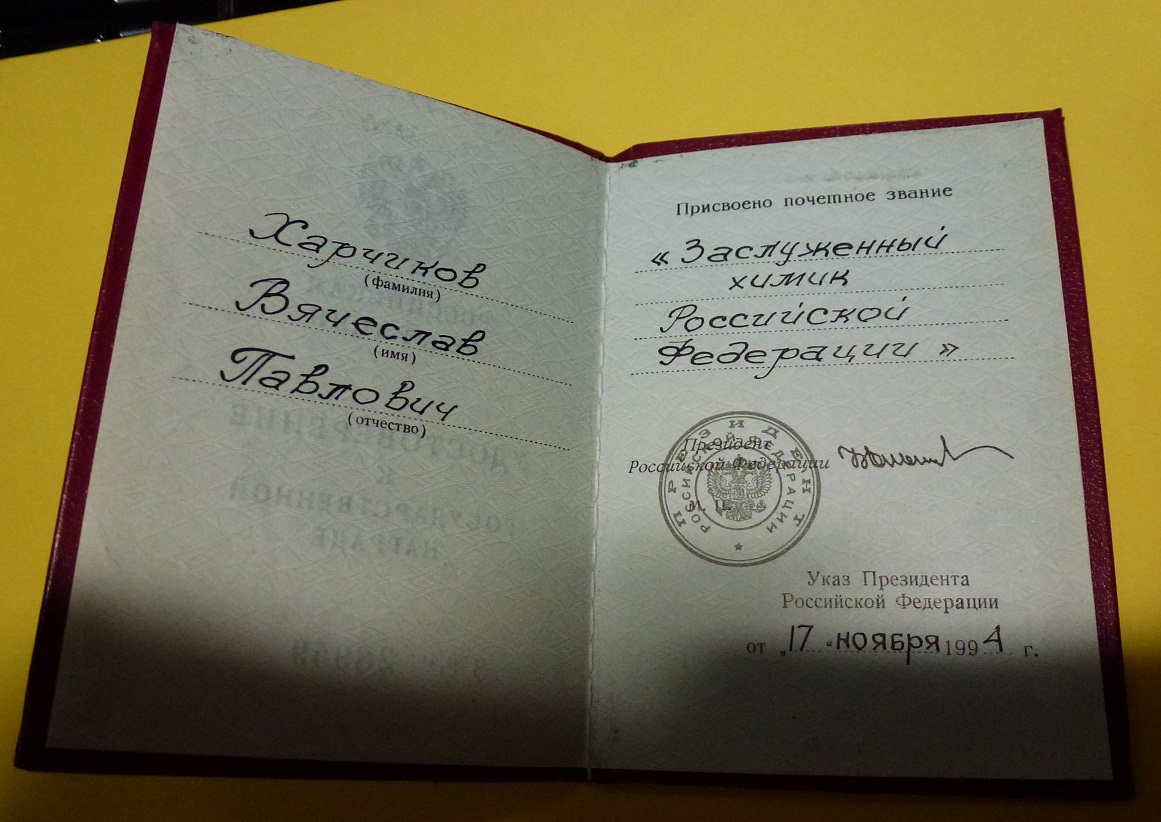 Харчиков
(фамилия)
Вячеслав
(имя)
Павлович
(отчество)
УДОСТОВЕРЕНИЕ
К
ГОСУДАРСТВЕННОЙ
НАГРАДЕ
Присвоено почетное звание
« Заслуженный
химик
Российской
Федерации »
Президент
Российской Федерации
М. П.
ПРЕЗИДЕНТ
РОССИЙСКОЙ ФЕДЕРАЦИИ
Указ Президента
Российской Федерации
от „17 " ноября 1994 г.